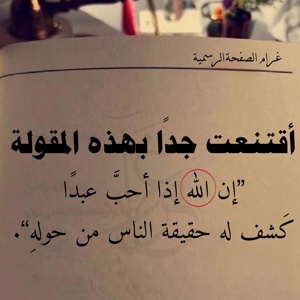 غرام الصفحة الرسمية
أقتنعت جدًا بهذه المقولة
”إن الله إذا أحبَّ عبدًا
كَشف له حقيقة الناس من حولهِ“.